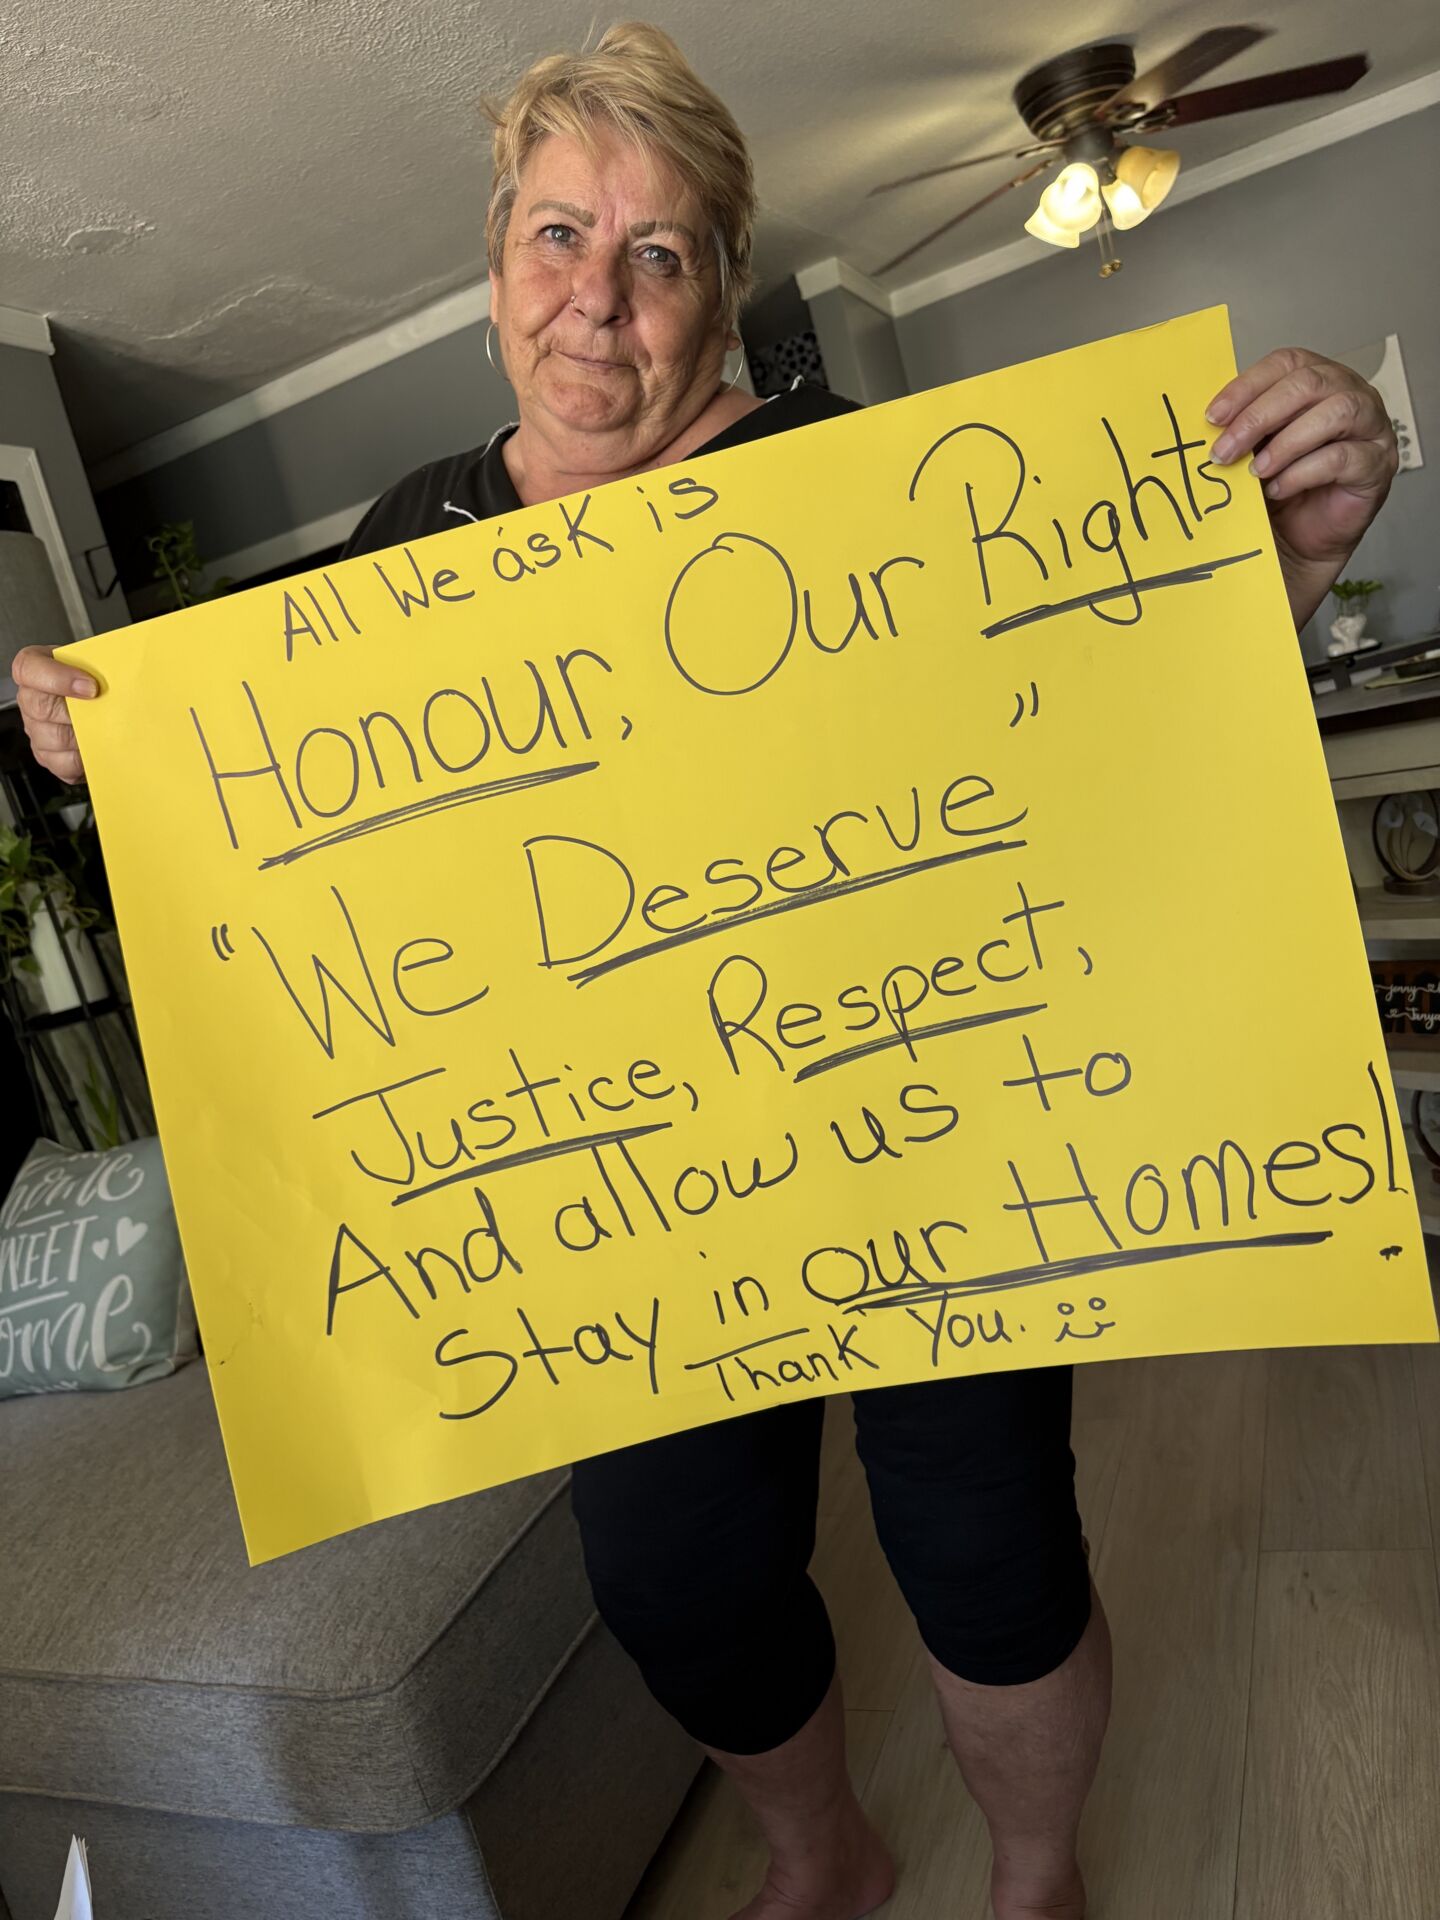 All We ask is
Honour, Our Rights
"We Deserve"
Justice, Respect,
And allow us to
Stay in our Homes!
Thank You.
home
SWEET
home